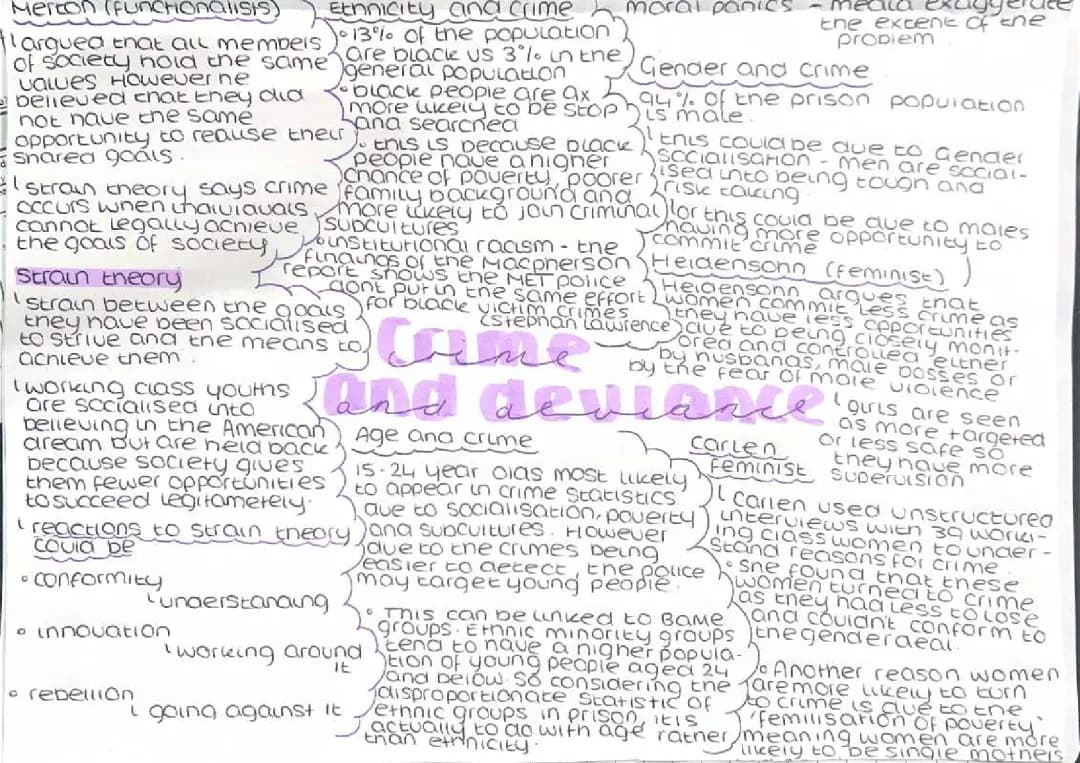 Merton (Functionalist)
argued that all members
of society hold the same
values However he
believed that they did
not have the same
opportunity to realise their
shared goals.
strain theory says crime
occurs when individuals
cannot legally achieve
the goals of society
Strain theory
strain between the goals
they have been socialised
to strive and the means to
achieve them.
working class youths
are socialised into
believing in the American
dream but are held back
because society gives
them fewer opportunities
to succeed legitametely.
reactions to strain theory
could be
• conformity
understanding
• innovation
working around
it
• rebellion
going against it
Ethnicity and crime
• 13% of the population
are black vs 3% in the
general population
• black people are 9x
more likely to be stop
and searched
• this is because black
people have a higher
chance of poverty, poorer
family background and
more likely to join criminal
subcultures
• institutional racism - the
findings of the Macpherson
report shows the MET police
dont put in the same effort
for black victim crimes
(Stephan Lawrence)
moral panics - media exaggerate
the extent of the
problem
Gender and crime
94% of the prison population
is male.
this could be due to Gender
socialisation - men are social-
ised into being tough and
risk taking.
or this could be due to males
having more opportunity to
commit crime
Heidensohn (feminist)
Heidensohn argues that
women commit less crime as
they have less opportunities
due to being closely monit-
ored and controlled either
by husbands, male bosses or
by the fear of male violence
girls are seen
as more targeted
or less safe so
they have more
supervision
Crime
and deviance
Age and crime
15-24 year olds most likely
to appear in crime statistics
due to socialisation, poverty
and subcultures. However
due to the crimes being
easier to detect, the police
may target young people.
• This can be linked to BAME
groups. Ethnic minority groups
tend to have a higher popula-
tion of young people aged 24
and below. So considering the
disproportionate statistic of
ethnic groups in prison, it is
actually to do with age rather
than ethnicity.
Carlen
feminist
Carlen used unstructured
interviews with 39 work-
ing class women to under-
stand reasons for crime.
• She found that these
women turned to crime
as they had less to lose
and couldn't conform to
the gender deal.
• Another reason women
are more likely to turn
to crime is due to the
'femilisation of poverty'
meaning women are more
likely to be single mothers